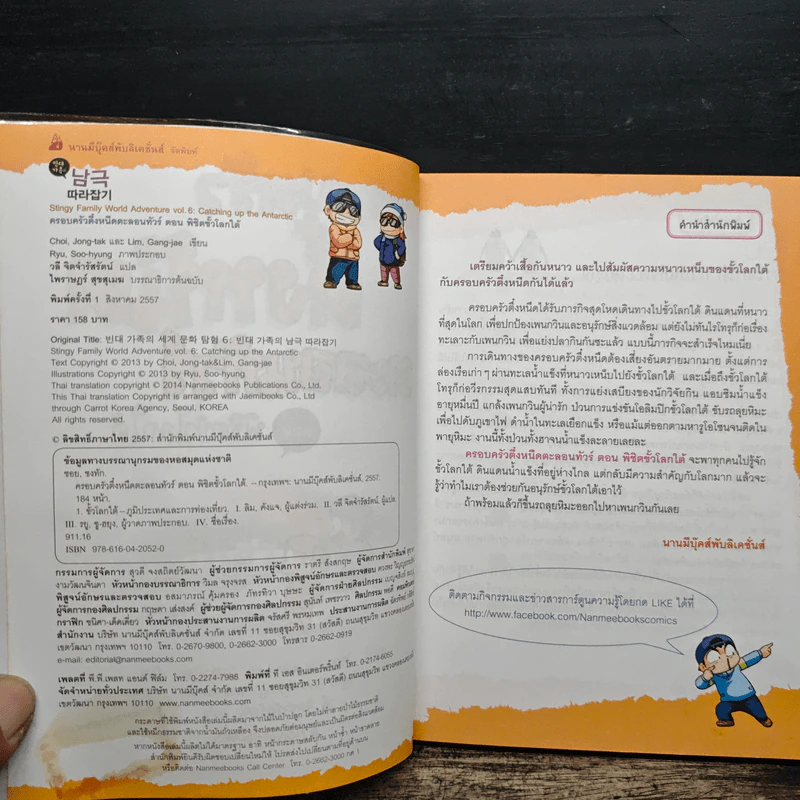 นานมีบุ๊คส์พับลิเคชั่นส์ จัดพิมพ์
빈대 가족의
남극
따라잡기
Stingy Family World Adventure vol. 6: Catching up the Antarctic
ครอบครัวตึ๋งหนืดตะลอนทัวร์ ตอน พิชิตขั้วโลกใต้
Choi, Jong-tak และ Lim, Gang-jae เขียน
Ryu, Soo-hyung ภาพประกอบ
วลี จิตจำรัสรัตน์ แปล
ไพราษฎร์ สุขสุเมฆ บรรณาธิการต้นฉบับ
พิมพ์ครั้งที่ 1 สิงหาคม 2557
ราคา 158 บาท
Original Title: 빈대 가족의 세계 문화 탐험 6: 빈대 가족의 남극 따라잡기
Stingy Family World Adventure vol. 6: Catching up the Antarctic
Text Copyright © 2013 by Choi, Jong-tak&Lim, Gang-jae
Illustrations Copyright © 2013 by Ryu, Soo-hyung
Thai translation copyright © 2014 Nanmeebooks Publications Co., Ltd.
This Thai translation Copyright is arranged with Jaemibooks Co., Ltd
through Carrot Korea Agency, Seoul, KOREA
All rights reserved.
© ลิขสิทธิ์ภาษาไทย 2557: สำนักพิมพ์นานมีบุ๊คส์พับลิเคชั่นส์
ข้อมูลทางบรรณานุกรมของหอสมุดแห่งชาติ
ชอย, ชงทัก.
ครอบครัวตึ๋งหนืดตะลอนทัวร์ ตอน พิชิตขั้วโลกใต้. -- กรุงเทพฯ: นานมีบุ๊คส์พับลิเคชั่นส์, 2557.
184 หน้า.
1. ขั้วโลกใต้--ภูมิประเทศและการท่องเที่ยว. I. ลิม, คังแจ, ผู้แต่งร่วม. II. วลี จิตจำรัสรัตน์, ผู้แปล.
III. รยู, ซู-ฮยุง, ผู้วาดภาพประกอบ. IV. ชื่อเรื่อง.
911.16
ISBN 978-616-04-2052-0
กรรมการผู้จัดการ สุวดี จงสถิตย์วัฒนา ผู้ช่วยกรรมการผู้จัดการ ราตรี สังสกฤษ ผู้จัดการสำนักพิมพ์
งามวัฒน์จินดา หัวหน้ากองบรรณาธิการ วิมล จรุงจรส หัวหน้ากองพิสูจน์อักษรและตรวจสอบ
พิสูจน์อักษรและตรวจสอบ อสมาภรณ์ คุ้มครอง ภัทรทิวา บุษษะ ผู้จัดการฝ่ายศิลปกรรม
ผู้จัดการกองศิลปกรรม กฤษดา เส่งสงค์ ผู้ช่วยผู้จัดการกองศิลปกรรม สุนันท์ เพชราวา ศิลปกรรม
กราฟิก ชนิศา เด็ดเดี่ยว หัวหน้ากองประสานงานการผลิต จรัสศรี พรหมเทพ ประสานงานการผลิต
สำนักงาน บริษัท นานมีบุ๊คส์พับลิเคชั่นส์ จำกัด เลขที่ 11 ซอยสุขุมวิท 31 (สวัสดี) ถนนสุขุมวิท แขวงคลองเตยเหนือ
เขตวัฒนา กรุงเทพฯ 10110 โทร. 0-2670-9800, 0-2662-3000 โทรสาร 0-2662-0919
e-mail: editorial@nanmeebooks.com
เพลตที่ พี.พี.เพลท แอนด์ ฟิล์ม โทร. 0-2274-7988 พิมพ์ที่ ที เอส อินเตอร์พริ้นท์ โทร. 0-2174-6055
จัดจำหน่ายทั่วประเทศ บริษัท นานมีบุ๊คส์ จำกัด เลขที่ 11 ซอยสุขุมวิท 31 (สวัสดี) ถนนสุขุมวิท แขวงคลองเตยเหนือ
เขตวัฒนา กรุงเทพฯ 10110 www.nanmeebooks.com
กระดาษที่ใช้พิมพ์หนังสือเล่มนี้ผลิตมาจากไม้ในป่าปลูก โดยไม่ทำลายป่าไม้ธรรมชาติ
และใช้หมึกธรรมชาติจากน้ำมันถั่วเหลือง จึงปลอดภัยต่อมนุษย์และเป็นมิตรต่อสิ่งแวดล้อม
หากหนังสือเล่มนี้ผลิตไม่ได้มาตรฐาน อาทิ หน้ากระดาษสลับกัน หน้าซ้ำ หน้าขาดหาย
สำนักพิมพ์ยินดีรับผิดชอบเปลี่ยนใหม่ให้ โปรดส่งไปเปลี่ยนตามที่อยู่ด้านบน
หรือติดต่อ Nanmeebooks Call Center โทร. 0-2662-3000 กด 1
คำนำสำนักพิมพ์
เตรียมคว้าเสื้อกันหนาว และไปสัมผัสความหนาวเหน็บของขั้วโลกใต้
กับครอบครัวตึ๋งหนืดกันได้แล้ว
ครอบครัวตึ๋งหนืดได้รับภารกิจสุดโหดเดินทางไปขั้วโลกใต้ ดินแดนที่หนาว
ที่สุดในโลก เพื่อปกป้องเพนกวินและอนุรักษ์สิ่งแวดล้อม แต่ยังไม่ทันไรโทรุก็ก่อเรื่อง
ทะเลาะกับเพนกวิน เพื่อแย่งปลากินกันซะแล้ว แบบนี้ภารกิจจะสำเร็จไหมเนี่ย
การเดินทางของครอบครัวตึ๋งหนืดต้องเสี่ยงอันตรายมากมาย ตั้งแต่การ
ล่องเรือเก่าๆ ผ่านทะเลน้ำแข็งที่หนาวเหน็บไปยังขั้วโลกใต้ และเมื่อถึงขั้วโลกใต้
โทรุก็ก่อวีรกรรมสุดแสบทันที ทั้งการแย่งเสบียงของนักวิจัยกิน แอบชิมน้ำแข็ง
อายุหมื่นปี แกล้งเพนกวินผู้น่ารัก ป่วนการแข่งขันโอลิมปิกขั้วโลกใต้ ขับรถลุยหิมะ
เพื่อไปดับภูเขาไฟ ดำน้ำในทะเลเยือกแข็ง หรือแม้แต่ออกตามหารูโอโซนจนติดใน
พายุหิมะ งานนี้ทั้งป่วนทั้งฮาจนน้ำแข็งละลายเลยละ
ครอบครัวตึ๋งหนืดตะลอนทัวร์ ตอน พิชิตขั้วโลกใต้ จะพาทุกคนไปรู้จัก
ขั้วโลกใต้ ดินแดนน้ำแข็งที่อยู่ห่างไกล แต่กลับมีความสำคัญกับโลกมาก แล้วจะ
รู้ว่าทำไมเราต้องช่วยกันอนุรักษ์ขั้วโลกใต้เอาไว้
ถ้าพร้อมแล้วก็ขึ้นรถลุยหิมะออกไปหาเพนกวินกันเลย
นานมีบุ๊คส์พับลิเคชั่นส์
ติดตามกิจกรรมและข่าวสารการ์ตูนความรู้โดยกด LIKE ได้ที่
http://www.facebook.com/Nanmeebookscomics